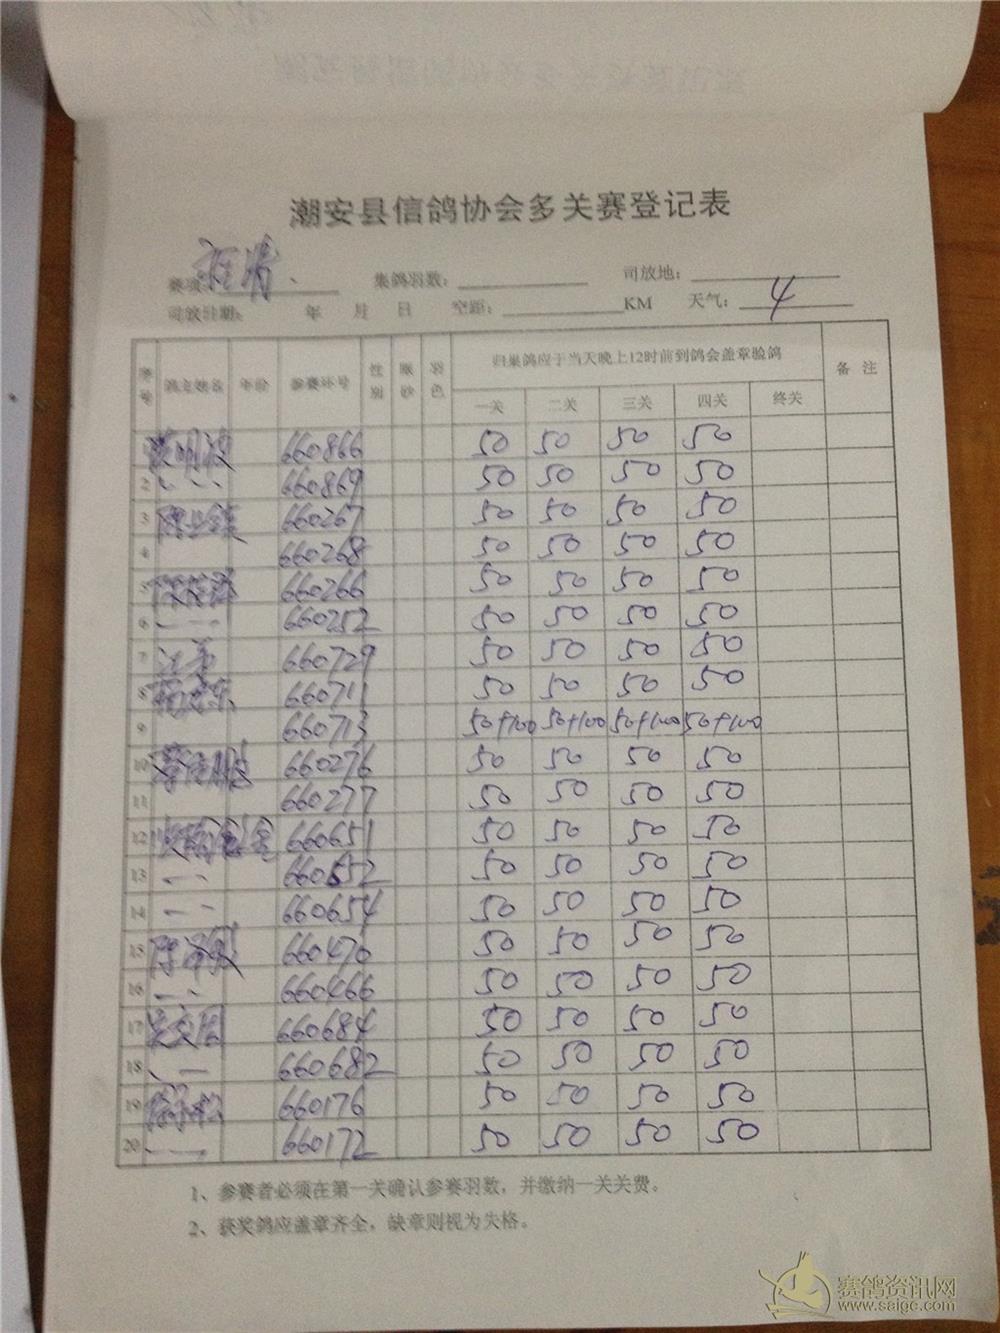 潮安县信鸽协会多关赛登记表
赛项: 集鸽羽数: 司放地:
司放日期: 年 月 日 空距: KM 天气: 4
序号 鸽主姓名 年份 参赛环号 性别 眼砂 羽色 归巢鸽应于当天晚上12时前到鸽会盖章验鸽 备注
一关 二关 三关 四关 终关
660866 50 50 50 50
2 660869 50 50 50 50
3 660267 50 50 50 50
4 660268 50 50 50 50
5 660266 50 50 50 50
6 660252 50 50 50 50
7 660729 50 50 50 50
8 660711 50 50 50 50
9 660713 50+100 50+100 50+100 50+100
10 660276 50 50 50 50
11 660277 50 50 50 50
12 660651 50 50 50 50
13 660652 50 50 50 50
14 660654 50 50 50 50
15 660476 50 50 50 50
16 660466 50 50 50 50
17 660684 50 50 50 50
18 660682 50 50 50 50
19 660176 50 50 50 50
20 660172 50 50 50 50
1、参赛者必须在第一关确认参赛羽数，并缴纳一关关费。
2、获奖鸽应盖章齐全，缺章则视为失格。
赛鸽资讯网
www.saigc.com